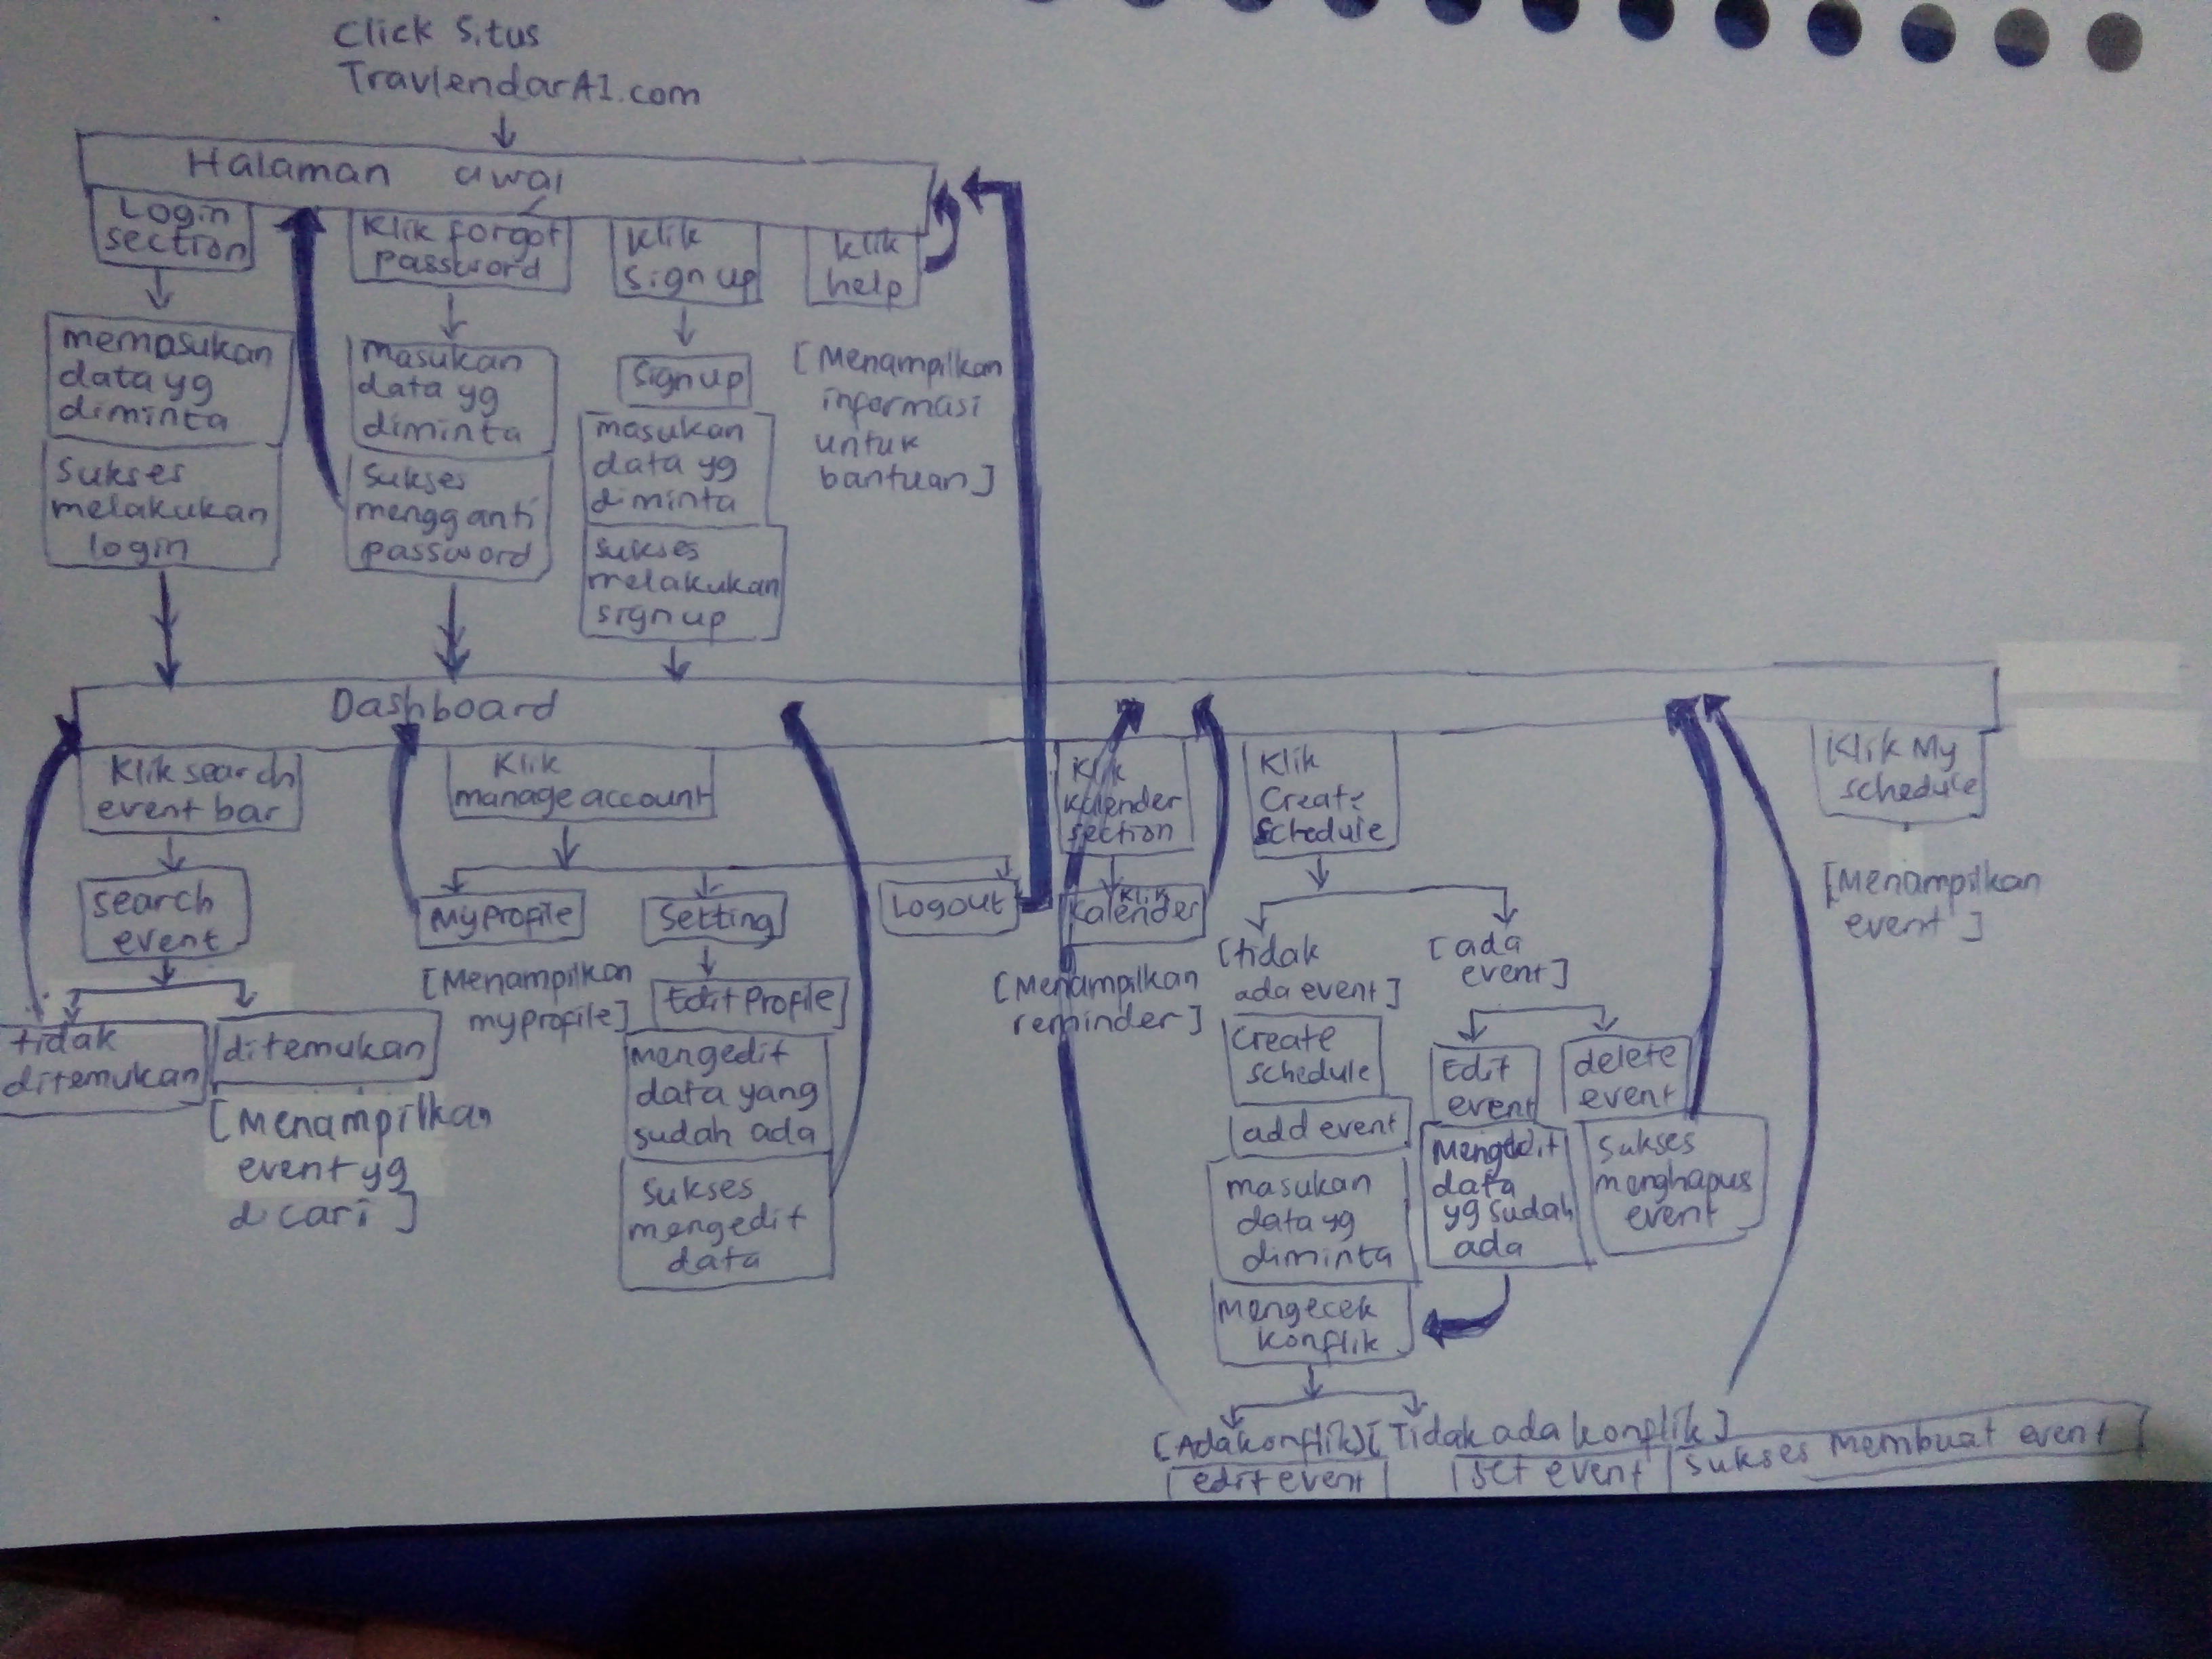 Click Situs
TravlendarA1.com
Halaman awal
Login
section
Klik forgot
password
Klik
Sign up
Klik
help
memasukan
data yg
diminta
Sukses
melakukan
login
masukan
data yg
diminta
Sukses
mengganti
password
Sign up
masukan
data yg
diminta
Sukses
melakukan
sign up
[Menampilkan
informasi
untuk
bantuan]
Dashboard
Klik search
event bar
search
event
tidak
ditemukan
ditemukan
[Menampilkan
event yg
dicari]
Klik
manage account
My profile
[Menampilkan
my profile]
Setting
Edit Profile
Mengedit
data yang
sudah ada
Sukses
mengedit
data
Logout
Klik
Kalender
section
Klik
Kalender
[Menampilkan
reminder]
Klik
Create
Schedule
[tidak
ada event]
Create
schedule
add event
masukan
data yg
diminta
Mengecek
Konflik
[ada
event]
Edit
event
Mengedit
data
yg sudah
ada
delete
event
Sukses
menghapus
event
Klik My
schedule
[Menampilkan
event]
[Ada konflik] [Tidak ada konflik]
edit event
set event
Sukses membuat event